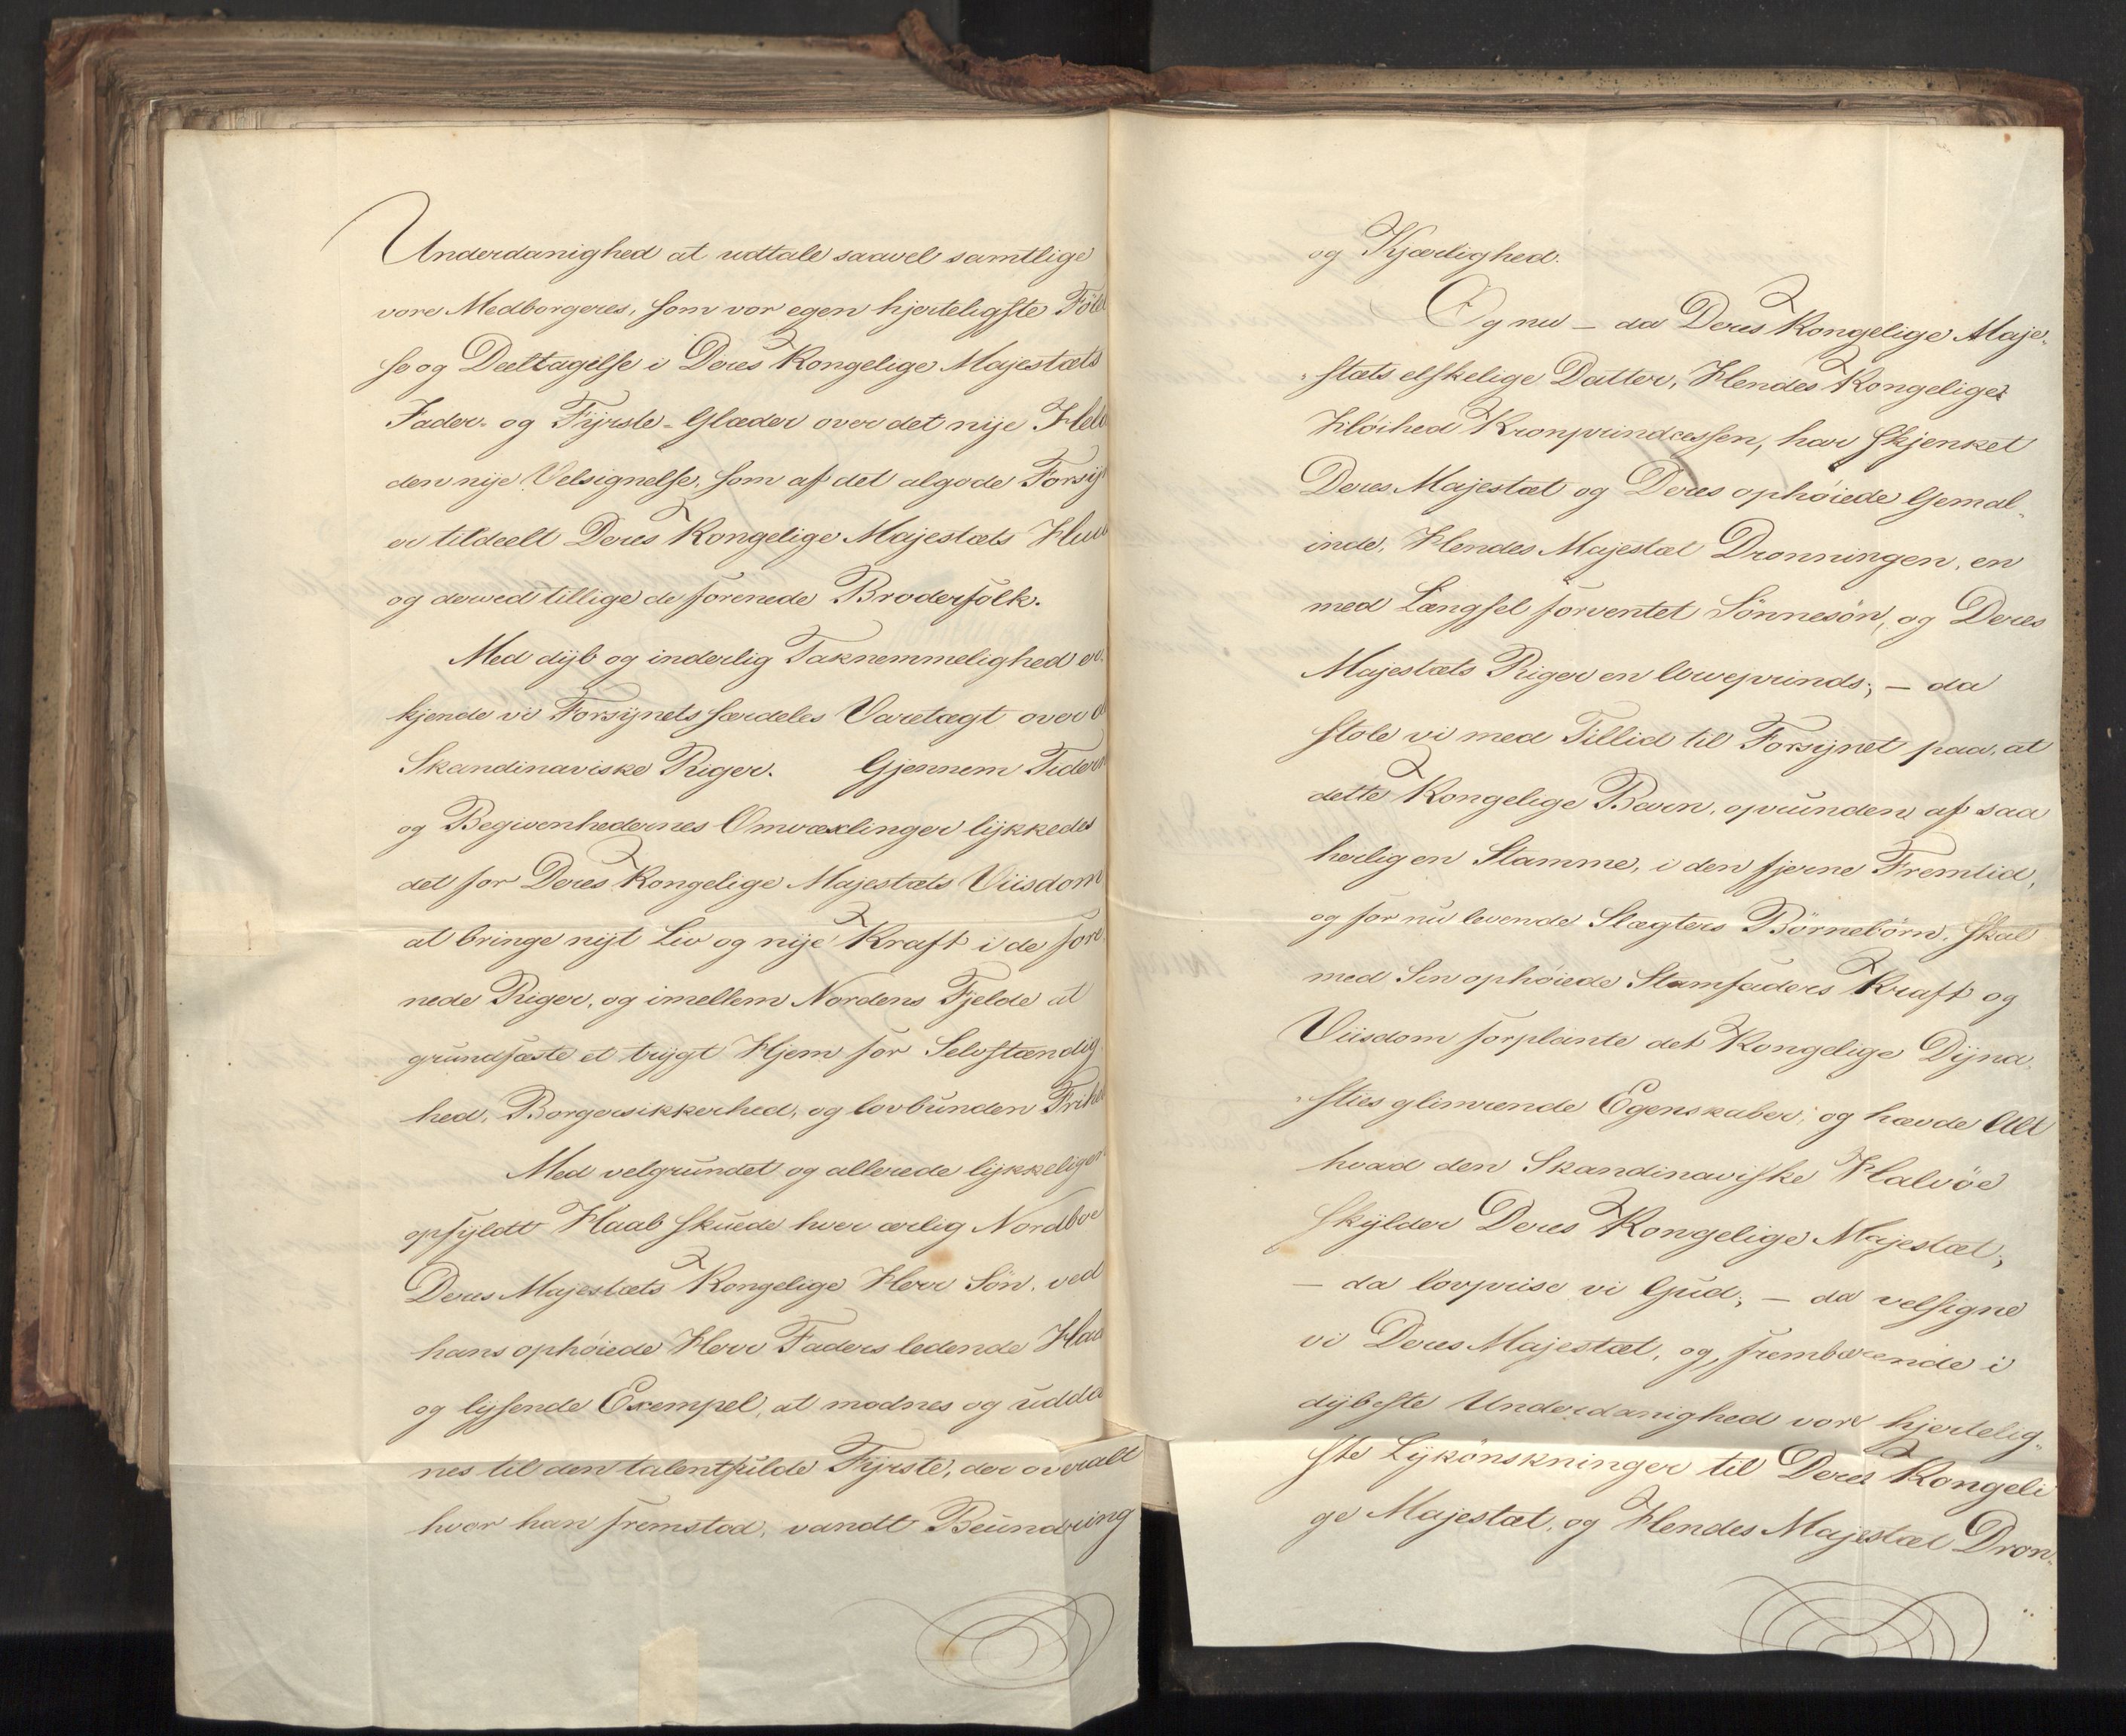 Underdanighed at udtale saavel samtlige
vore Medborgeres, som vor egen hjerteligste Föle
se og Deeltagelse i Deres Kongelige Majestæts
Fader- og Fyrste-Glæder over det nye Held
den nye Velsignelse, som af det algode Forsy
er tildeelt Deres Kongelige Majestæts Huus
og derved tillige de forenede Broderfolk.
Med dyb og inderlig Taknemmelighed er
kjende vi Forsynets særdeles Varetægt over
Skandinaviske Riger. Gjennem Tidern
og Begivenhedernes Omvexlinger lykkedes
det for Deres Kongelige Majestæts Viisdom
at bringe nyt Liv og nye Kraft i de fore
nede Riger, og imellem Nordens Fjelde at
grundfæste et trygt Hjem for Selvstændig
hed, Borgersikkerhed, og lovbunden Frihe
Med velgrundet og allerede lykkeligen
opfyldt Haab skuede hver ærlig Nordboe
Deres Majestæts Kongelige Herr Sön, ved
hans ophöiede Herr Faders ledende Haa
og lysende Exempel, at modnes og udda
nes til den talentfulde Fyrste, der overalt
hvor han fremstod, vandt Beundring
og Kjærlighed.
Og nu – da Deres Kongelige Maje-
stæts elskelige Datter, Hendes Kongelige
Höihed Kronprindcessen, har skjenket
Deres Majestæt og Deres ophöiede Gemal-
inde, Hendes Majestæt Dronningen, en
med Længsel forventet Sönnesön, og Deres
Majestæts Riger en Arveprinds; – da
stole vi med Tillid til Forsynet paa, at
dette Kongelige Barn, oprunden af saa
herlig en Stamme, i den fjerne Fremtid,
og for nu levende Slægters Börnebörn, skal
med Sin ophöiede Stamfaders Kraft og
Viisdom forplante det Kongelige Dyna-
sties glimrende Egenskaber, og hævde Alt
hvad den Skandinaviske Halvöe
skylder Deres Kongelige Majestæt;
– da lovprise vi Gud; – da velsigne
vi Deres Majestæt, og, frembærende i
dybeste Underdanighed vore hjertelig-
ste Lykönskninger til Deres Kongeli
ge Majestæt, og Hendes Majestæt Dron-